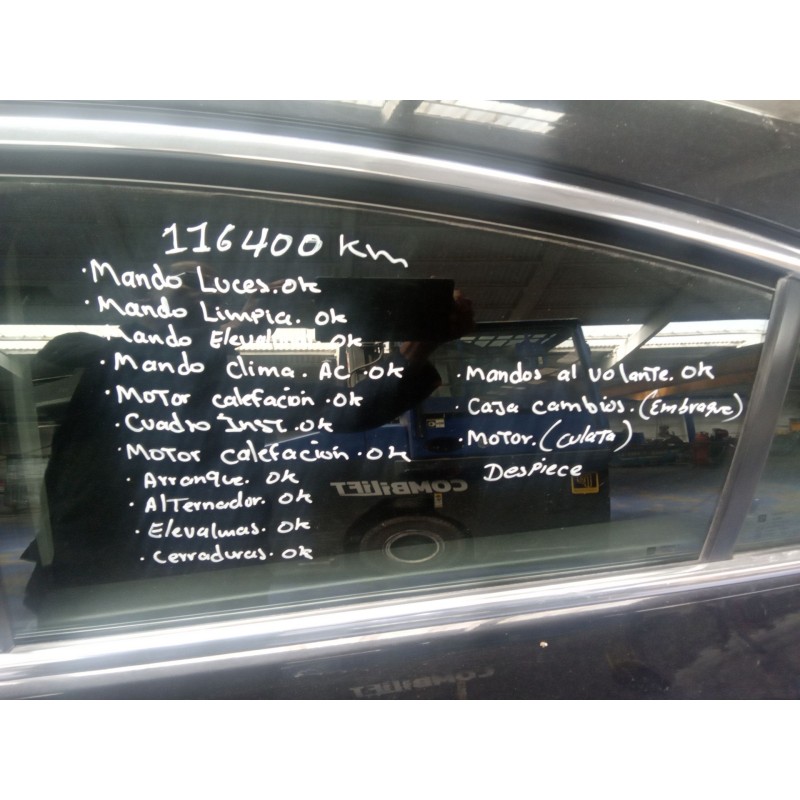 116400 Km
·Mando Luces. ok
·Mando Limpia. ok
Mando Elevalunas ok
·Mando clima. AC. ok
·Motor calefacion. ok
·Cuadro Inst. ok
·Motor calefacion. ok
·Arranque. ok
·Alternador. ok
·Elevalunas. ok
·Cerraduras. ok
·Mandos al volante. ok
·Caja cambios. (Embrague)
·Motor. (culata)
Despiece
COMBiLiFT
COMBiLiFT